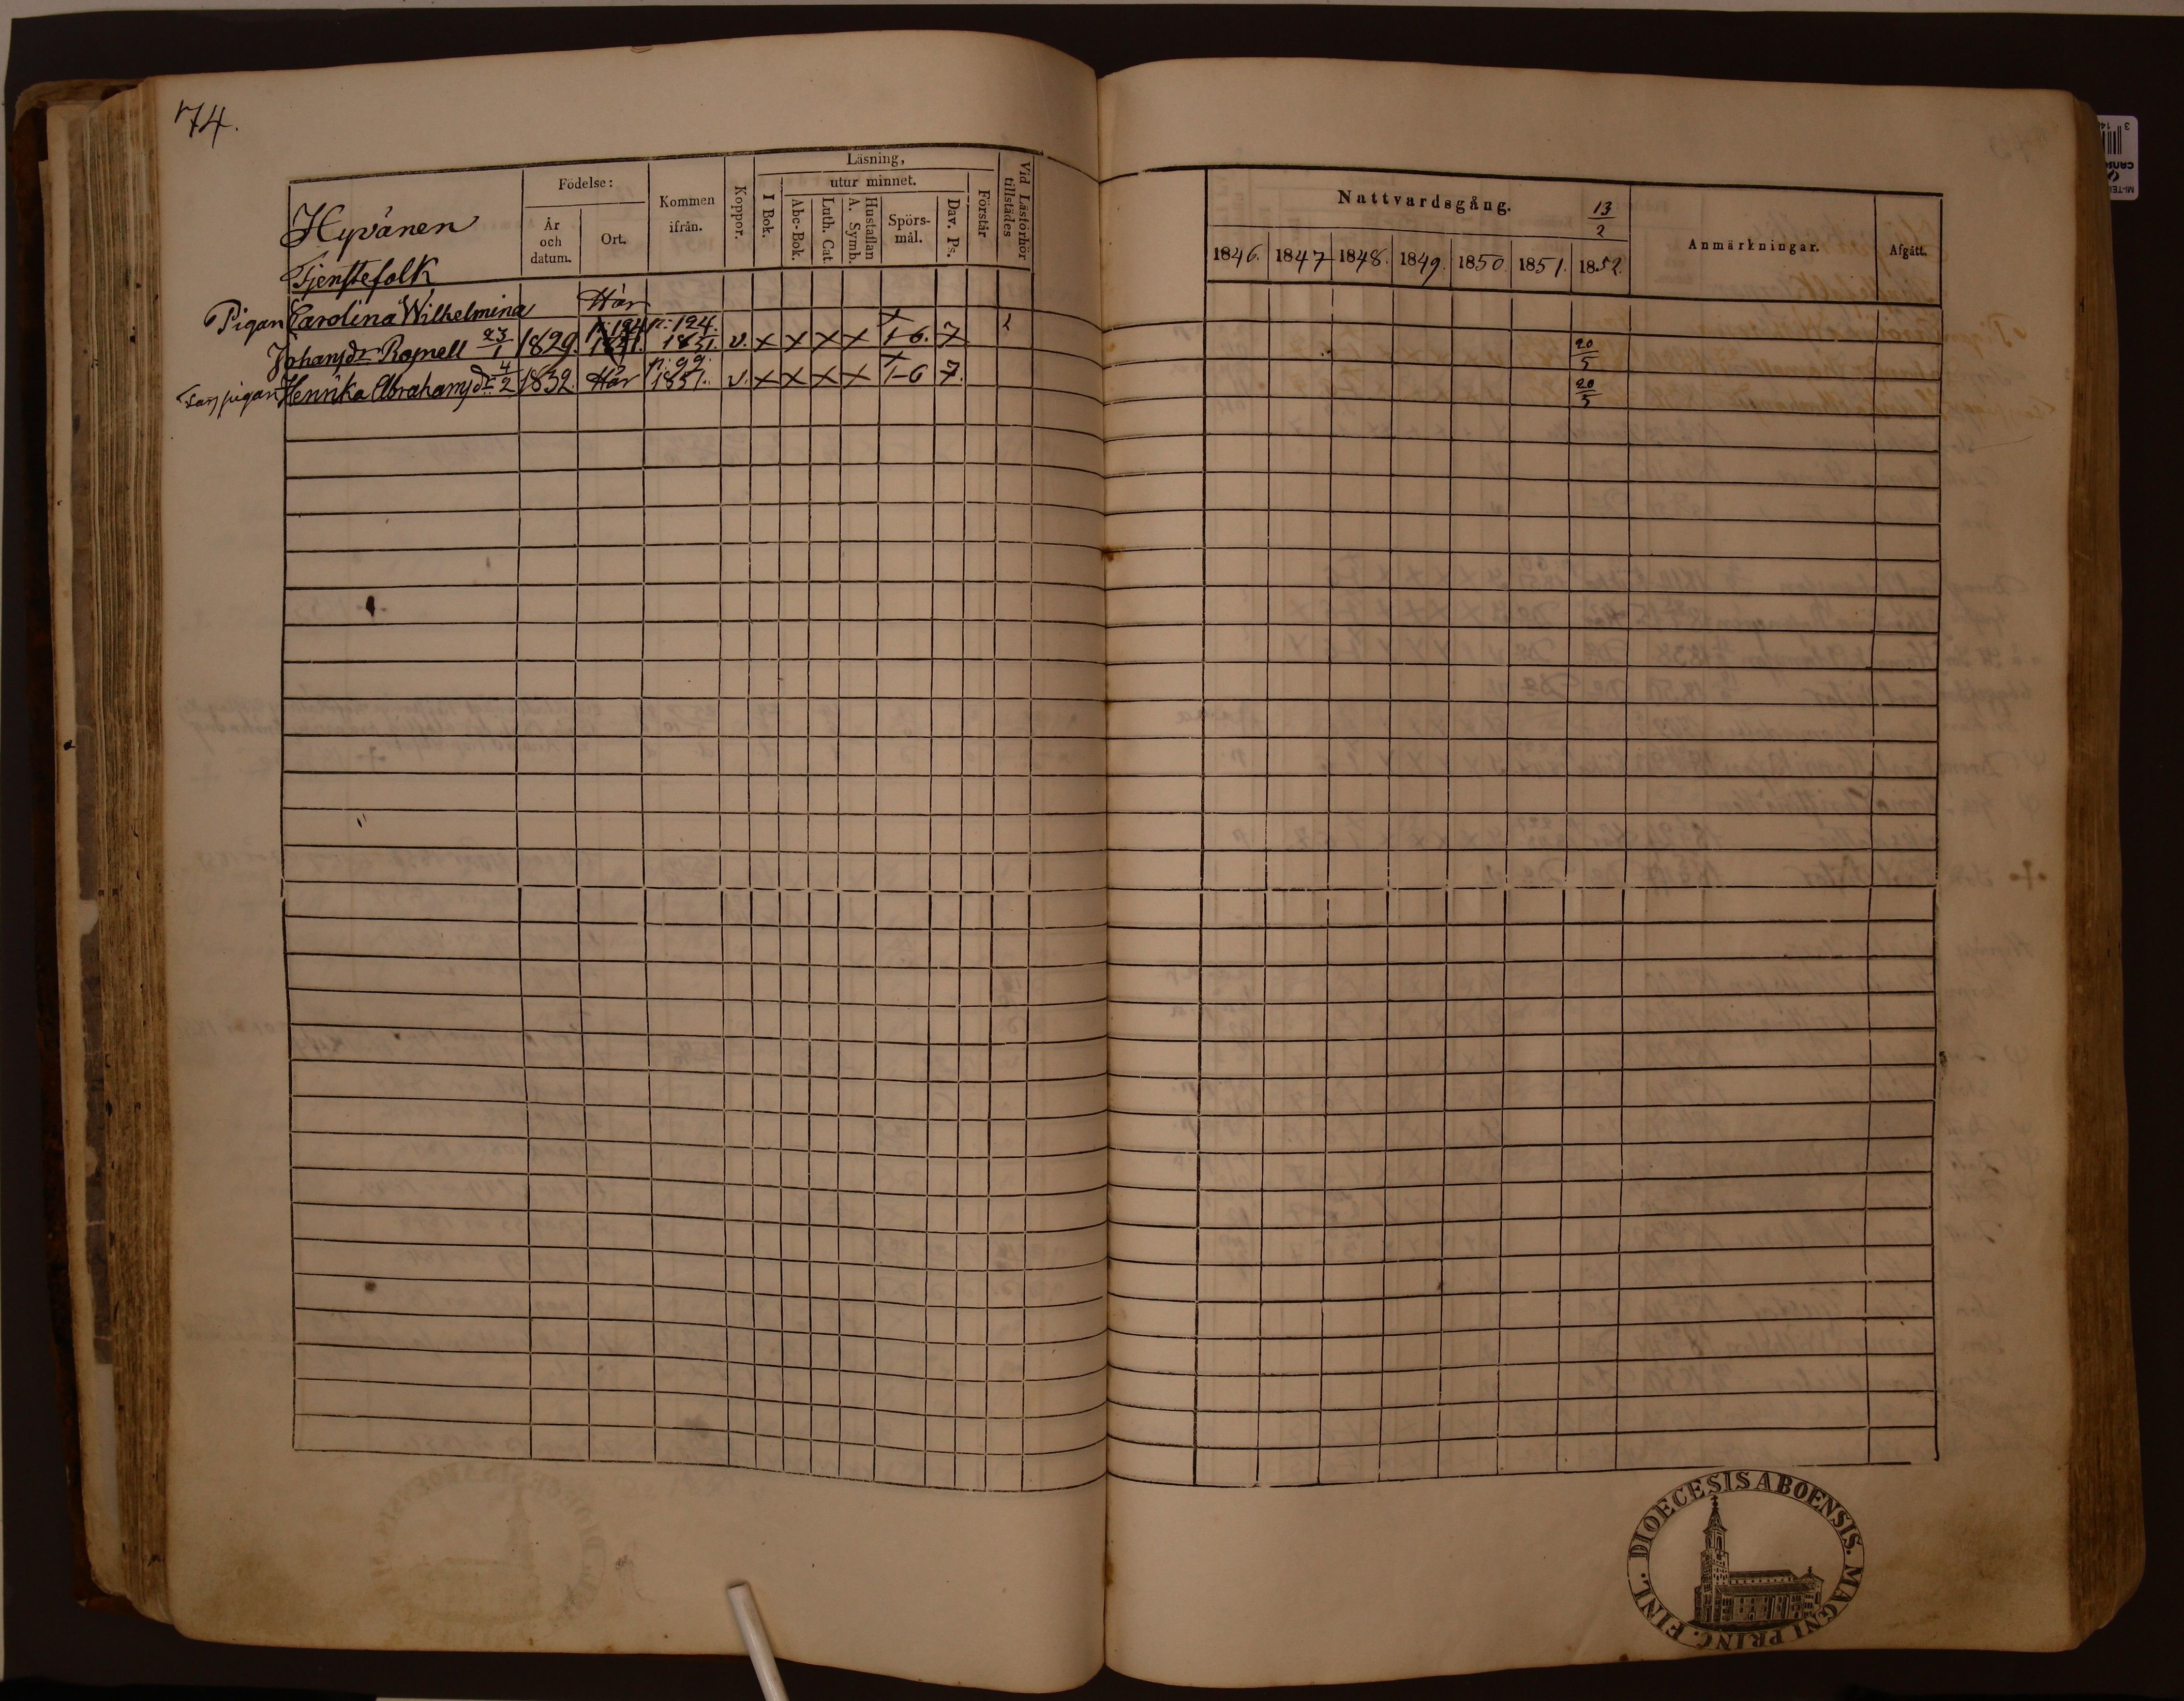 74.
Hyvänen
Tjenstefolk
Födelse:
År och datum.
Ort.
Kommen ifrån.
Koppor.
Läsning,
I Bok.
utur minnet.
Abc-Bok.
Luth. Cat.
Hustaflan A. Symb.
Spörs-mål.
Dav. Ps.
Förstår
Vid Läsförhör tillstädes
Nattvardsgång. 13/2
1846. 1847 1848. 1849. 1850. 1851. 1852.
Anmärkningar.
Afgått.
Pigan Carolina Wilhelmina Här
Johansdr 23/1 1829. p. 194 1851. p. 194. 1851. v. x x x x x 1-6. 7 20/5
Henrika Abrahamsdr 4/2 1832. Här p. 99. 1851. v. x x x x x 1-6 7. 20/5
DIOECESIS ABOENSIS. MAGNI PRINC. FINL.